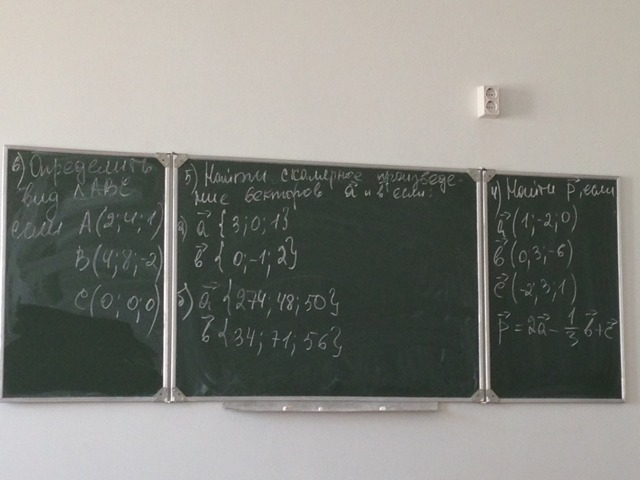 6) Определить
вид ΔABC
если A(2; 4; 1)
B(4; 8; -2)
C(0; 0; 0)
5) Найти скалярное произведе-
ние векторов a⃗ и в⃗ если:
а) a⃗ {3; 0; 1}
в⃗ {0; -1; 2}
б) a⃗ {274; 48; 50}
в⃗ {34; 71; 56}
4) Найти p⃗, если
a⃗ (1; -2; 0)
в⃗ (0; 3; -6)
c⃗ (-2; 3; 1)
p⃗ = 2a⃗ - 1/3 в⃗ + c⃗